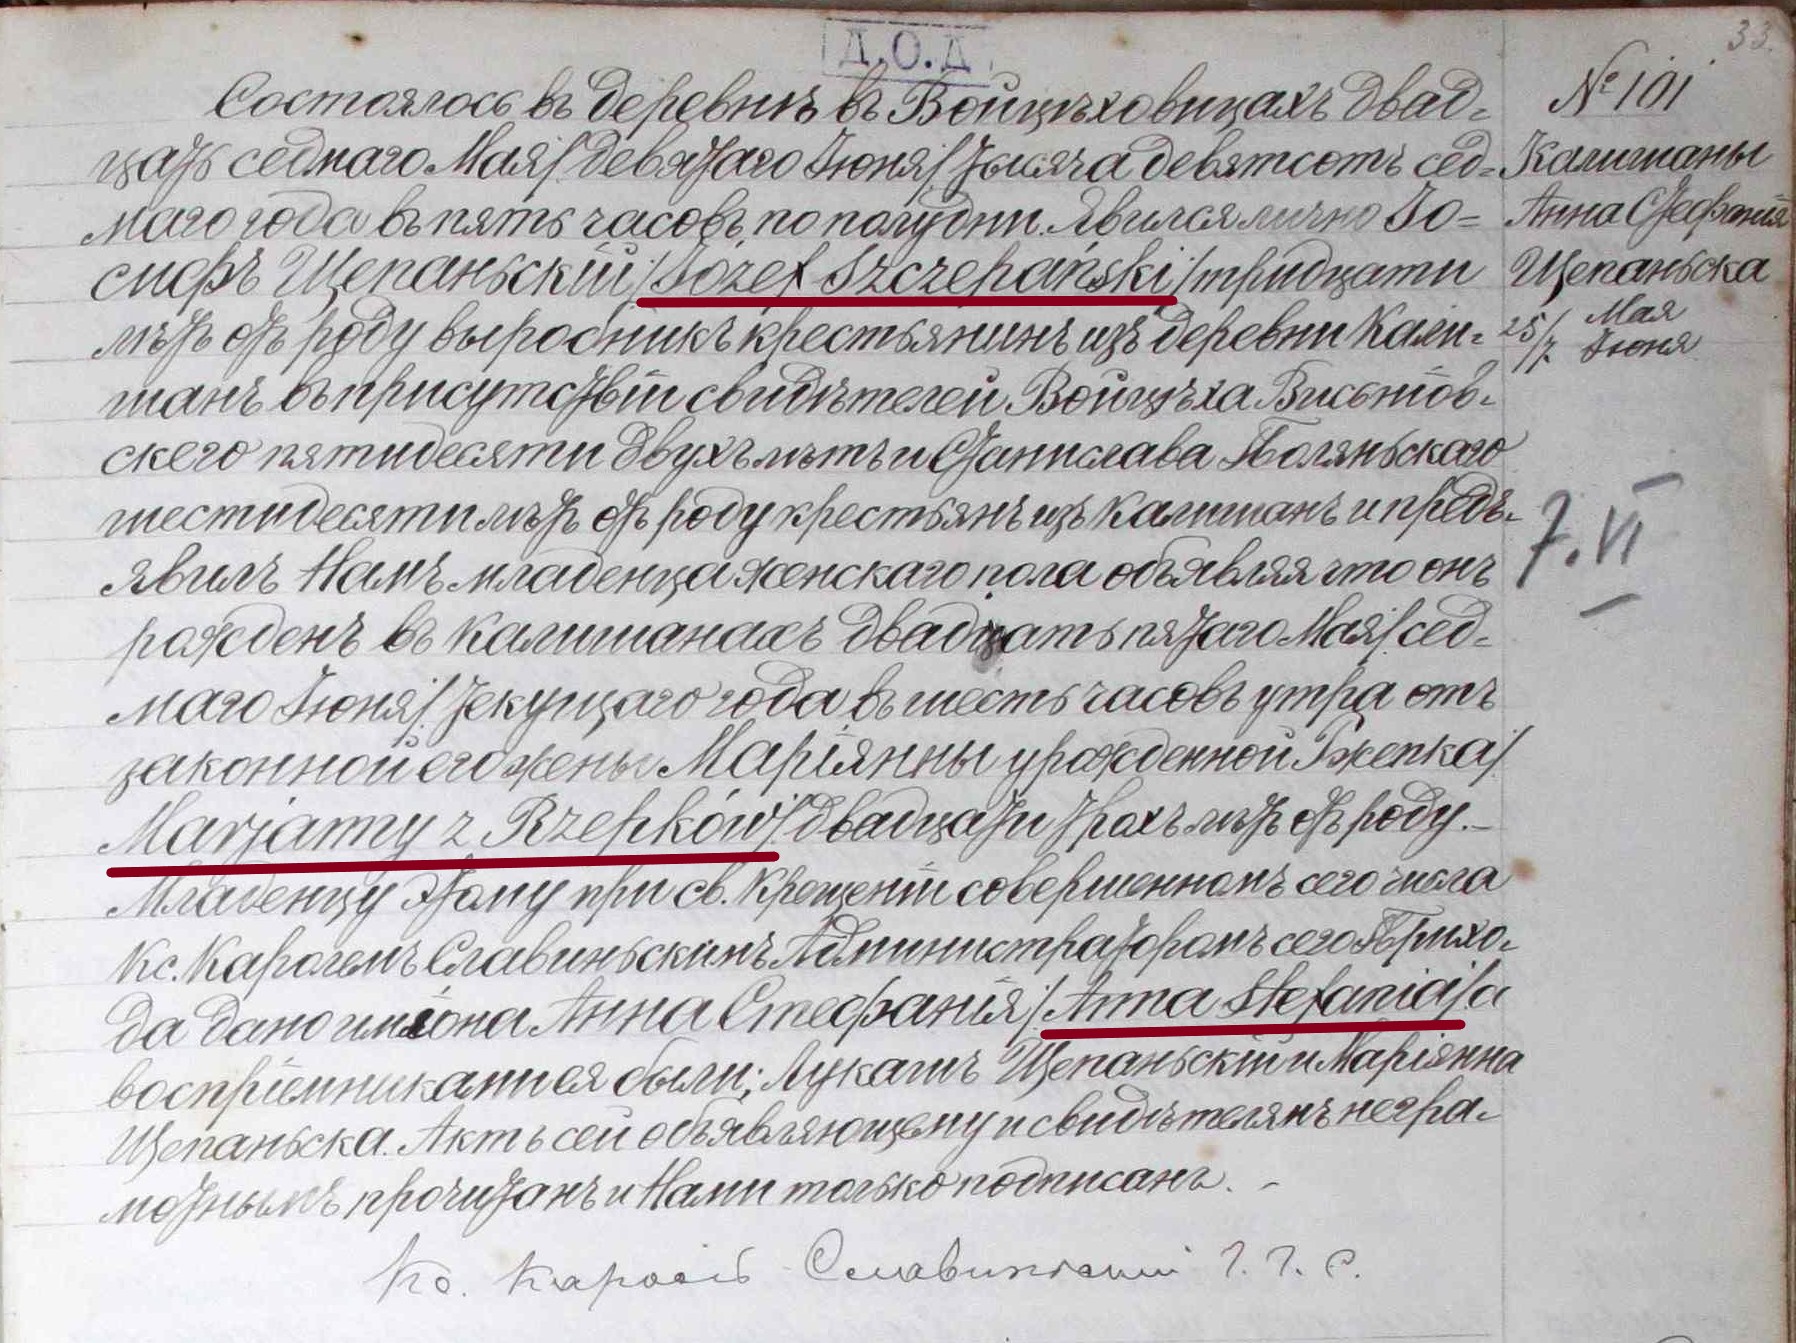 33.
Д.О.Д
Состоялось въ деревнѣ въ Войцѣховицахъ двад-
цать седмаго Мая/девятаго Іюня/тысяча девятсотъ сед-
маго года въ пять часовъ по полудни. Явился лично Іо-
сифъ Щепаньскій/Józef Szczepański/тридцати
лѣтъ отъ роду выробникъ крестьянинъ изъ деревни Кали-
шанъ въ присутствіи свидѣтелей Войцѣха
ского пятидесяти двухъ лѣтъ и Станислава Поляньскаго
шестидесяти лѣтъ отъ роду крестьянъ изъ Калишанъ и предъ-
явилъ Намъ младенца женскаго пола объявляя что онъ
рожденъ въ Калишанахъ двадцать пятаго Мая/сед-
маго Іюня/текущаго года въ шесть часовъ утра отъ
законной его жены Маріянны урожденной Ржепка/
Marjanny z Rzepków/двадцати трохъ лѣтъ отъ роду.-
Младенцу этому при св. Крещеніи совершенномъ сего числа
Кс. Каролемъ Славиньскимъ Администраторомъ сего Прихо-
да дано иміона Анна Стефанія/Anna Stefania/а
воспріемниками ея были; Лукашъ Щепаньскій и Маріянна
Щепаньска. Актъ сей объявляющему и свидѣтелямъ негра-
мотнымъ прочитанъ и Нами только подписанъ. -
Кс. Кароль Славиньскій
№ 101
Калишаны
Анна Стефанія
Щепаньска
25/7 Мая
Іюня
7.VI